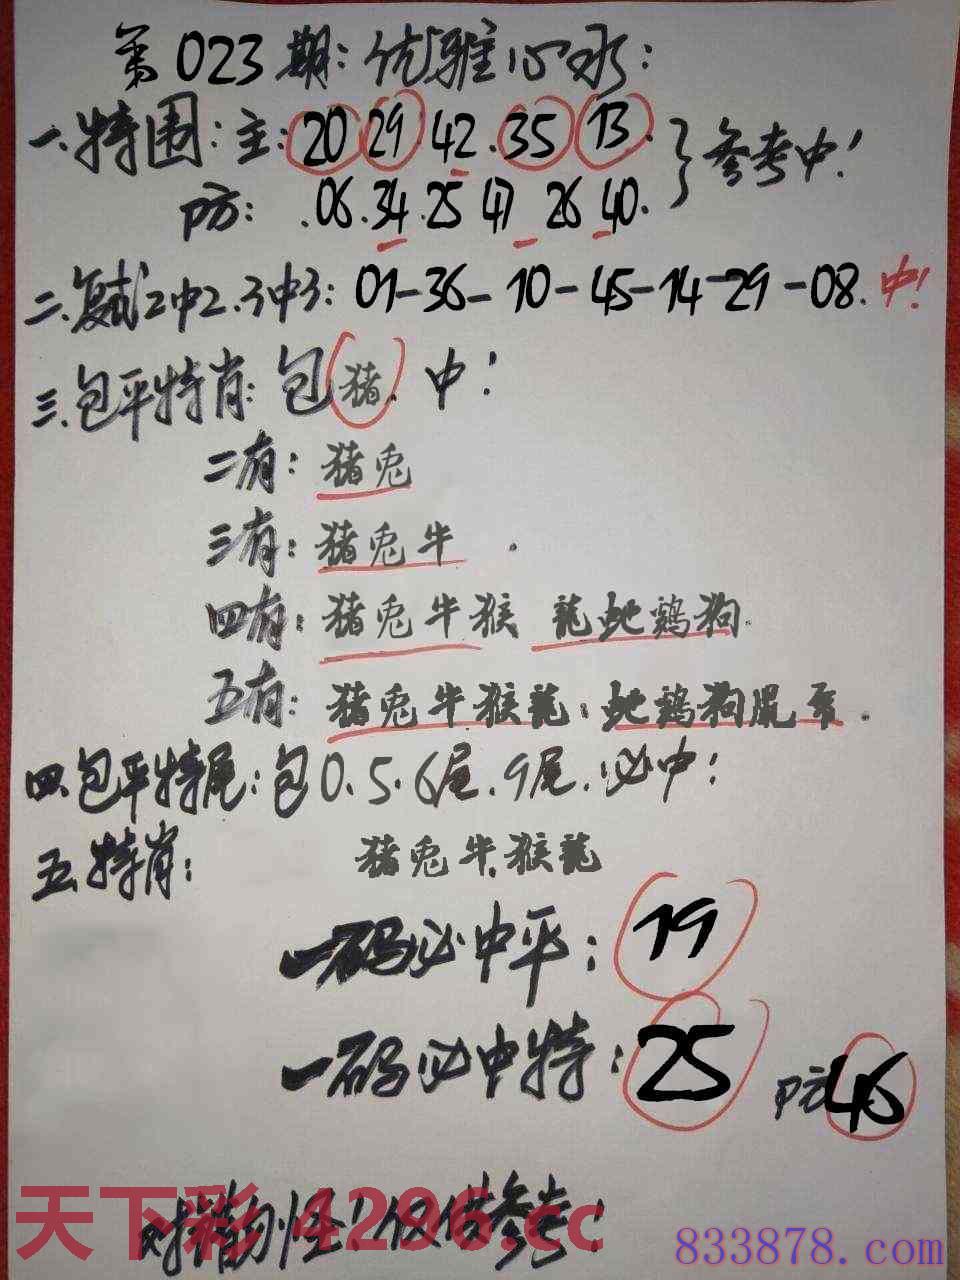 第023期:优雅心水:
一.特围:主:20 29.42.35 13.
防:.06.34.25 47 26 40.
参考中!
二.复试2中2.3中3:01-36-10-45-14-29-08.中!
三.包平特肖:包猪.中!
二有:猪兔
三有:猪兔牛.
四有:猪兔牛猴 龍蛇鷄狗.
五有:猪兔牛猴龍:蛇鷄狗鼠羊.
四.包平特尾:包0.5.6尾.9尾.必中!
五.特肖: 猪兔牛.猴龍
一码必中平:19
一码必中特:25 防46
对错勿怪!仅供参考!
天下彩4296.cc
833878.com